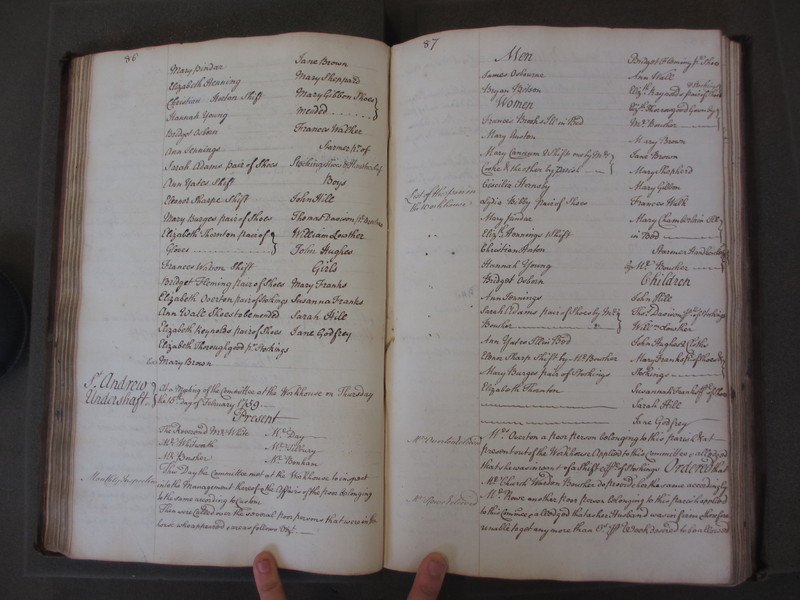 86
Mary Pindar
Elizabeth Henning
Christian Horton Shift
Hannah Young
Bridget Osborn
Ann Jennings
Sarah Adams pair of Shoes
Ann Yates Shift
Eleonr Sharpe Shift
Mary Burges pair of Shoes
Elizabeth Thornton pair of
Gloves
Frances Watson Shift
Bridget Fleming pair of Shoes
Elizabeth Overton pair of Stockings
Ann Wall Shoes to be mended
Elizabeth Reynolds pair of Shoes
Elizabeth Thoroughgood pr. Stockings
Mary Brown
Jane Brown
Mary Sheppard
Mary Gibbon Shoes
Mended
Frances Walker
Starmer pr. of
Stockings Shoes & Handkerchief
Boys
John Hill
Thomas Dawson pr. Breeches
William Lowther
John Hughes
Girls
Mary Franks
Susanna Franks
Sarah Hill
Jane Godfrey
St. Andrew
Undershaft
At a Meeting of the Committee at the Workhouse on Thursday
the 15th day of February 1759
Present
The Reverend Mr. White
Mr. Whitworth
Mr. Boucher
Mr. Day
Mr. Tilbury
Mr. Bonham
Monthly Inspection
This Day the Committee met at the Workhouse to inspect
into the Management thereof & the Affairs of the poor belonging
to the same according to Custom
Then were called over the several poor persons that were in the
house who appeared & are as follows Vizt.
87
Men
James Osbourne
Bryan Brison
Women
Frances Brooks Ill in Bed
Mary Auston
Mary Cannum 2 Shifts one by Mr.
Cooke & the other by Parish
Cicely Hornsby
Lydia Willy pair of Shoes
Mary Pindar
Elizth. Hennings Shift
Christian Horton
Hannah Young
Bridget Osborn
Ann Jennings
Sarah Adams pair of Shoes by Mr.
Boucher
Ann Yates Ill in Bed
Eleonr Sharp Shift by Mr. Boucher
Mary Burges pair of Stockings
Elizabeth Thornton
List of the poor in
the Workhouse
Bridget Fleming pr. Shoes
Ann Hall
Elizth. Reynolds pair of Shoes
& Stockings
Elizth. Thorrowgood Gown by
Mr. Boucher
Mary Brown
Jane Brown
Mary Shepherd
Mary Gibbon
Frances Walk
Mary Chamberlain Ill
in Bed
Starmer Handkerchief
by Mr. Boucher
Children
John Hill
Thos. Dawson pr. of Stockings
Willm. Lowther
John Hughes
Mary Franks pr. of Shoes &
Stockings
Susannah Franks pr. of Shoes
Sarah Hill
Jane Godfrey
Mrs. Overton a poor person belonging to this parish but
present out of the Workhouse Applied to this Committee & alledged
that she was in want of a Shift & pr. of Stockings Ordered that
Mr. Church Warden Boucher do provide her the same accordingly
Mrs. Rouse another poor person belonging to this parish applied
to this Committee & alledged that as her Husband was infirm & therefore
unable to get any more than Week desired to be allowed